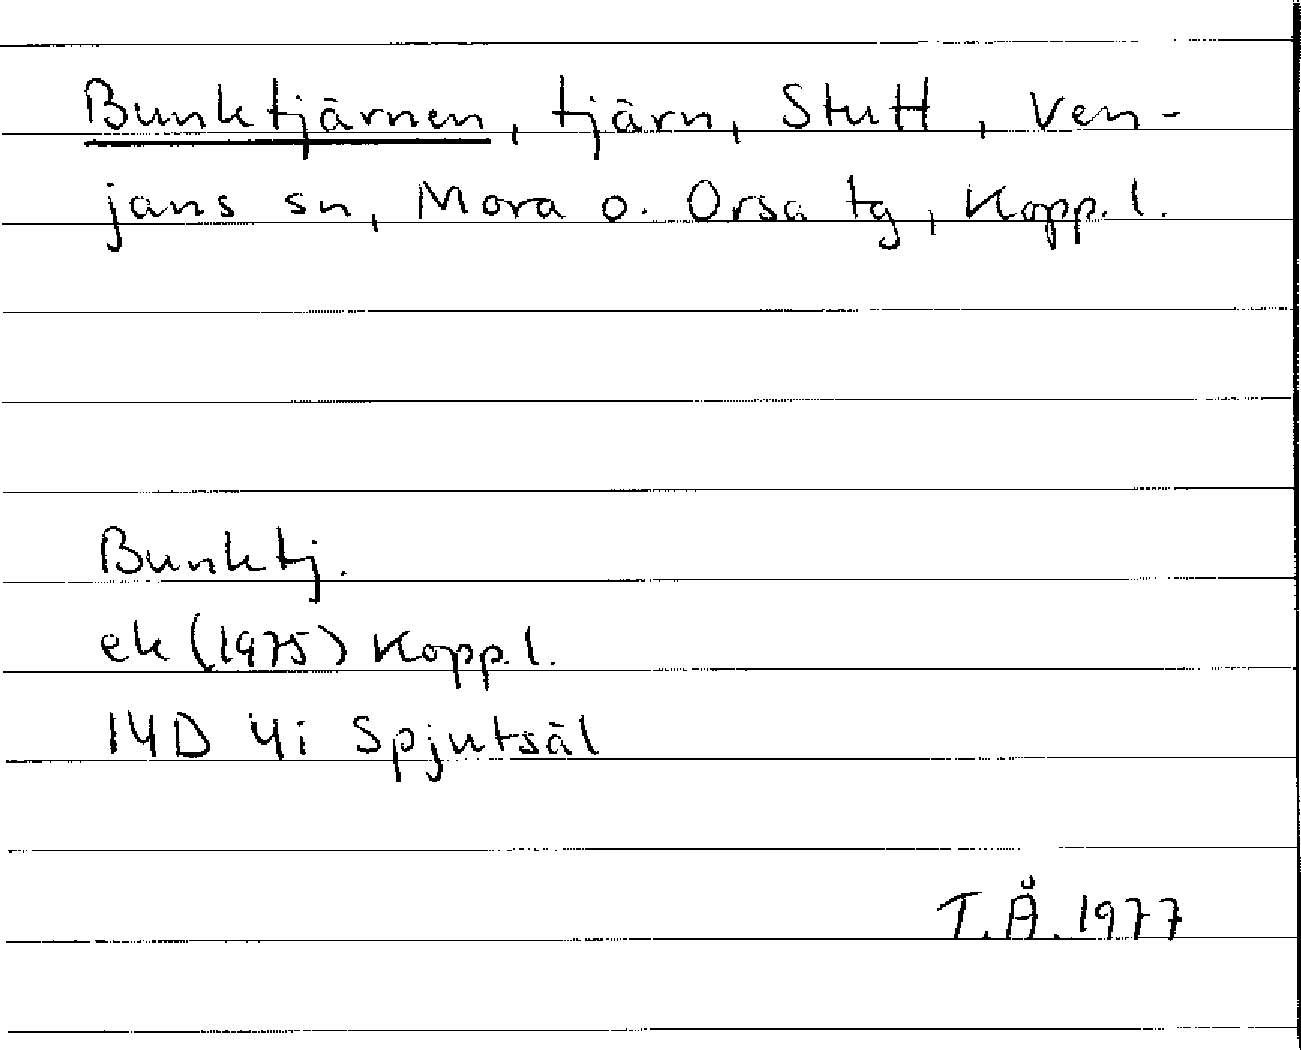 Bunktjärnen, tjärn, Stutt, Ven-
jans sn, Mora o. Orsa tg, Kopp. l.
Bunktj.
ek (1975) Kopp. l.
14D 4i Spjutsäl
T.Å. 1977